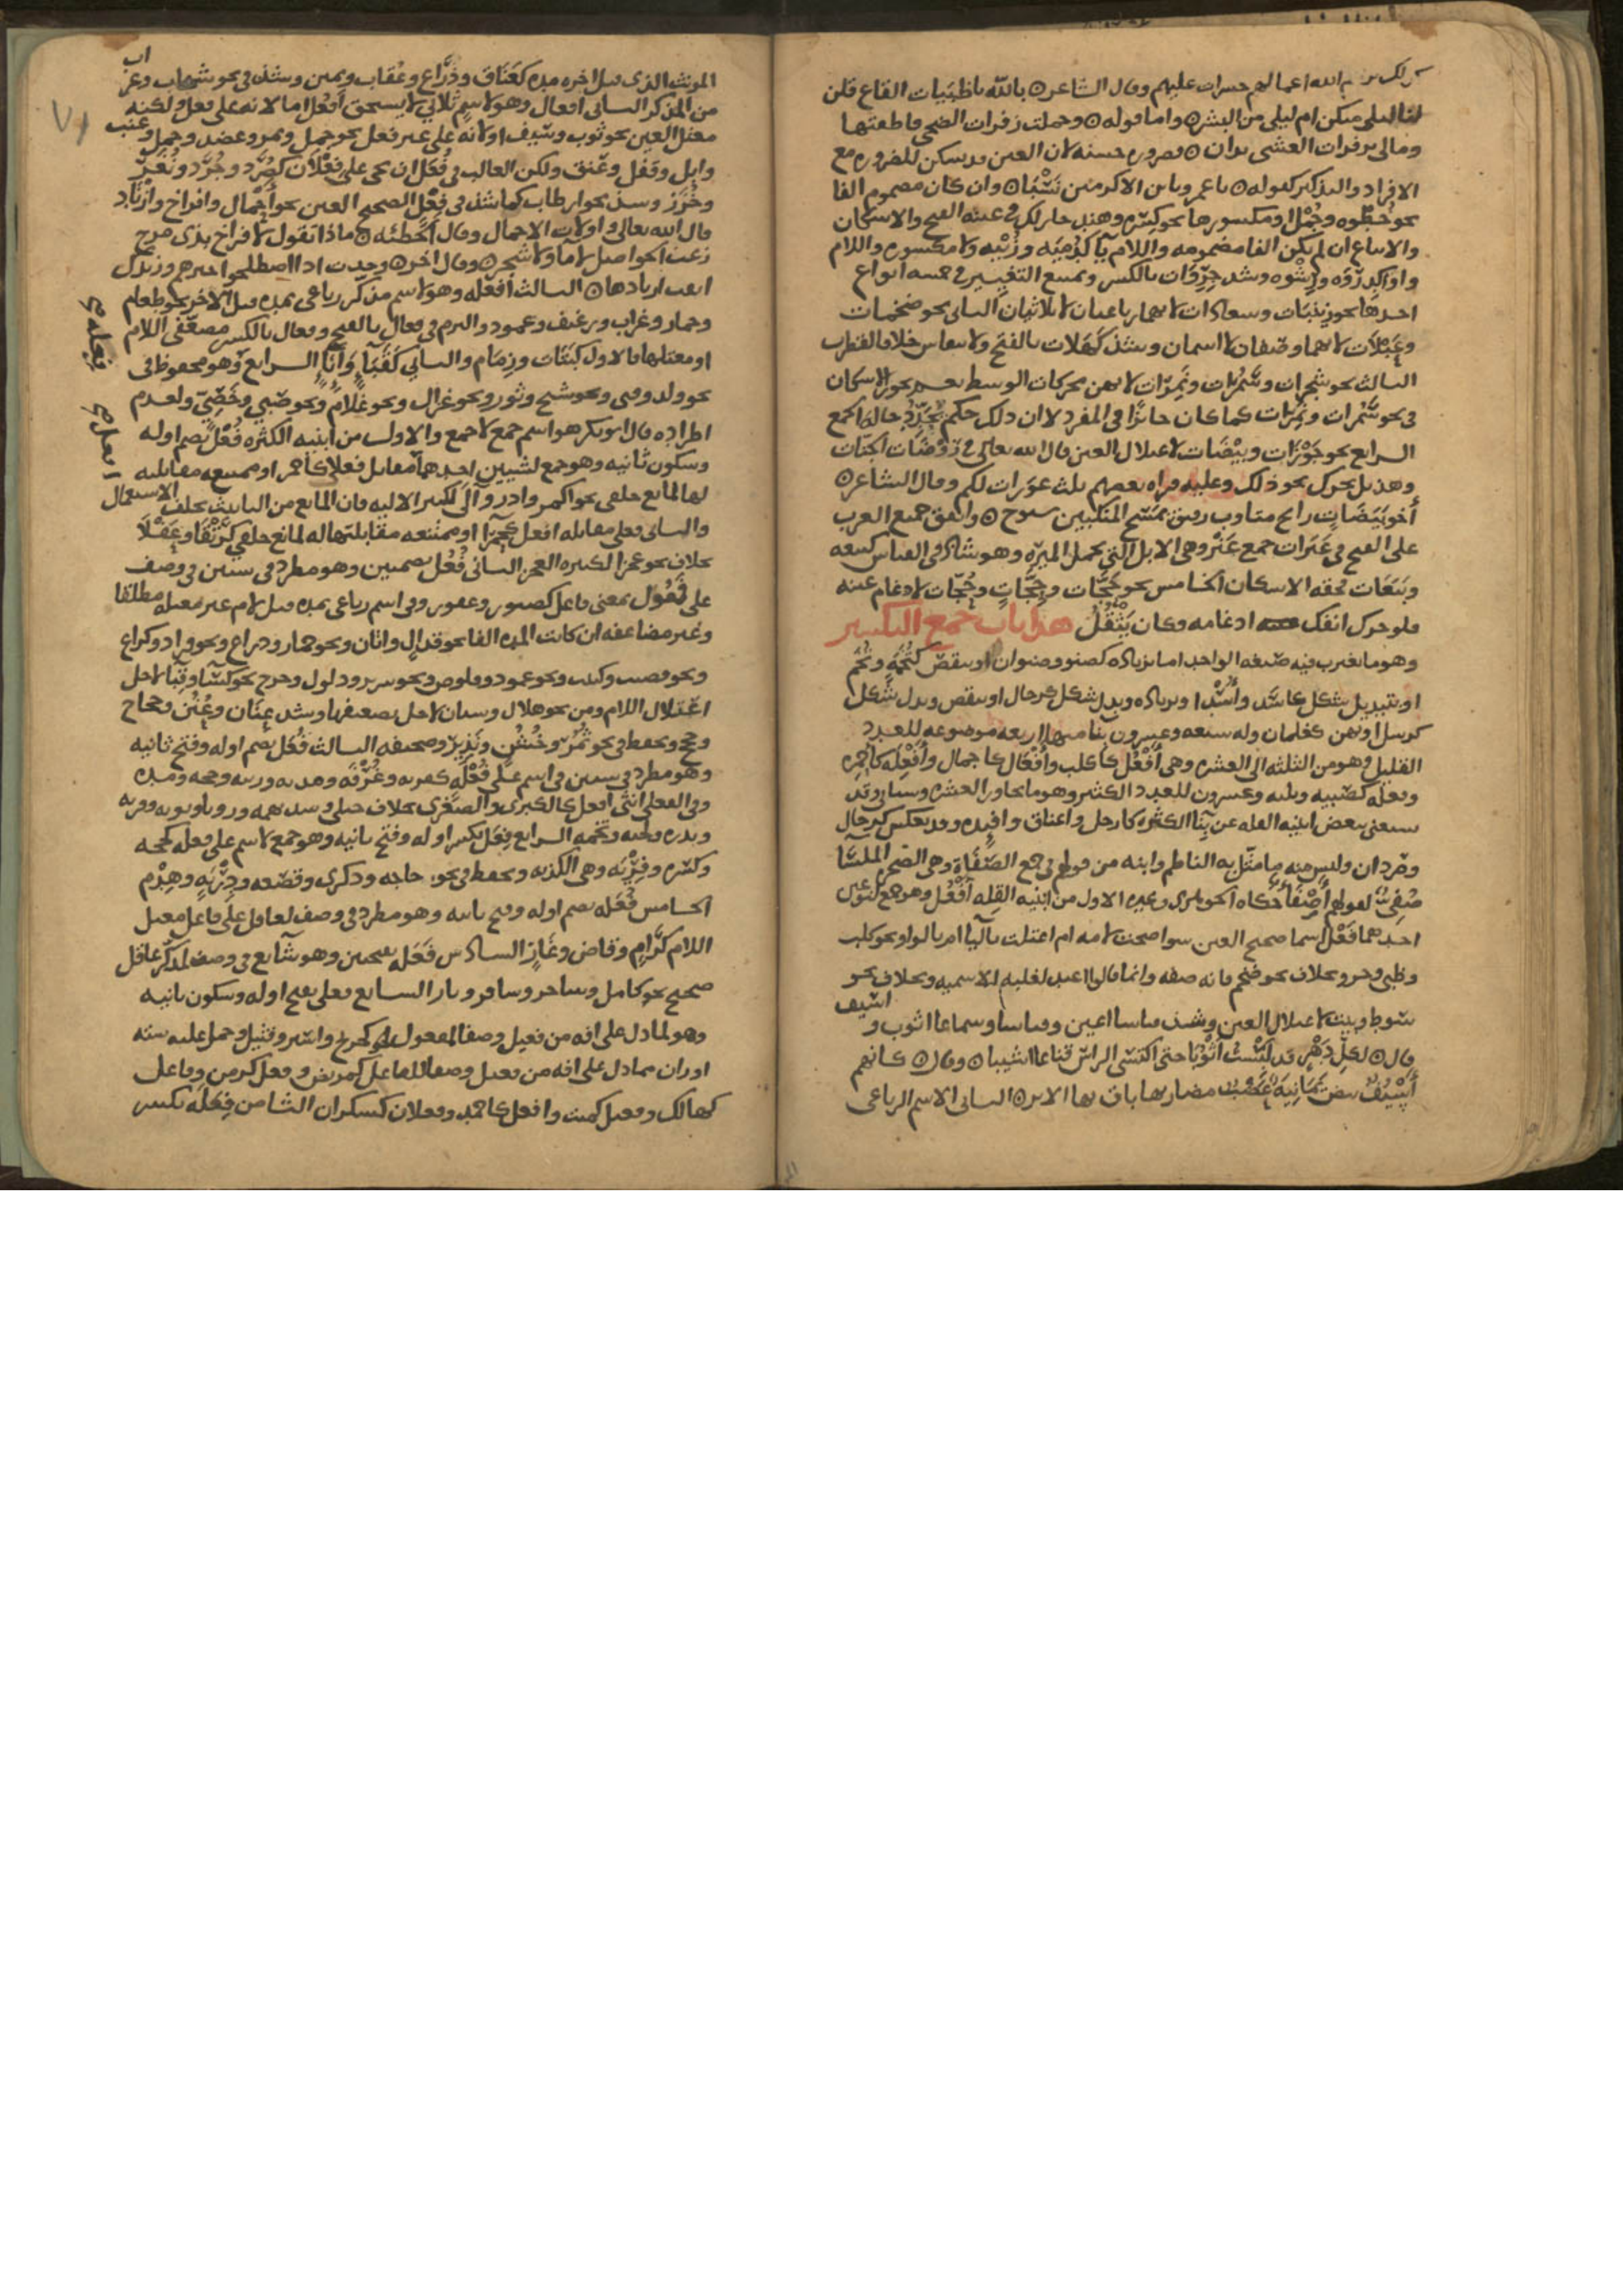 كذلك يريهم الله اعمالهم حسرات عليهم وقال الشاعر ه بالله يا ظبيات القاع قلن
لنا ليلاى منكن ام ليلى من البشر ه واما قوله ه وحملت زفرات الضحى فاطقتها
ومالى بزفرات العشى يدان ه فضروره حسنه لان العين قد يسكن للضروره مع
الافراد والتذكير كقوله ه يا عمرو يا بن الاكرمين نسبا ه وان كان مضموم الفا
نحو خطوه وجمل او مكسورها نحو كسره وهند جاز لك فى عينه الفتح والاسكان
والاتباع ان لم يكن الفا مضمومه واللام يآ كدميه وزبيه ولا مكسوره واللام
واوا كذروه ورشوه وشد جروات بالكسر ويمتنع التغيير فى خمسه انواع
احدها نحو زينبات وسعادات لانهما رباعيان لا ثلاثيان الثانى نحو ضخمات
وعبلات لانهما وصفان لا اسمان وشذ كهلات بالفتح ولا ينقاس خلافا لقطرب
الثالث نحو شجرات وسمرات ونمرات لانهن محركات الوسط نعم يجوز الاسكان
فى نحو سمرات ونمرات كما كان جائزا فى المفرد لا ان ذلك حكم تجدد حاله الجمع
الرابع نحو جوزات وبيضات لاعتلال العين قال الله تعالى فى روضات الجنات
وهذيل تحرك نحو ذلك وعليه قراه بعضهم ثلث عورات لكم وقال الشاعر ه
أخو بيضات رايح متاوب رفيق بمسح المنكبين سبوح ه واتفق جميع العرب
على الفتح فى عيرات جمع عير وهى الابل التى تحمل الميره وهو شاذ فى القياس كبيعه
وبيعات فحقه الاسكان الخامس نحو حجات وحجات وحجات لادغام عينه
فلو حرك انفك ادغامه فكان يثقل هذا باب جمع التكسير
وهو ما تغير فيه صيغه الواحد اما بزياده كصنو وصنوان او بنقص كتخمه وتخم
او تبديل شكل كاسد وأسد او بزياده وتبديل شكل كرجال او بنقص وتبديل شكل
كرسل او بهن كغلمان وله سبعه وعشرون بنا منها اربعه موضوعه للعدد
القليل وهو من الثلثه الى العشره وهى أفعل كاكلب وأفعال كاجمال وأفعلة كاحمره
وفعله كصبيه وثلثه وعشرون للعدد الكثير وهو ما تجاوز العشره وسياتى وقد
يستغنى ببعض ابنيه القله عن بنا الكثره كارجل واعناق وافئده وقد يعكس كرجال
وصردان وليس منه ما مثل به الناظم وابنه من قولهم فى جمع الصفاة وهى الصخره الملسا
صفى لقولهم أصفآ حكاه الجوهرى وغيره الاول من ابنيه القله أفعل وهو جمع لنوعين
احدهما فعل اسما صحيح العين سوا صحت لامه ام اعتلت باليا ام بالواو نحو كلب
وظبى وجرو بخلاف نحو ضخم فانه صفه وانما قالوا اعبد لغلبه الاسميه وبخلاف نحو
سوط وبيت لاعتلال العين وشذ قياسا اعين وقياسا وسماعا اثوب و اسيف
قال ه لكل دهر قد لبست أثوبا حتى اكتسى الراس قناعا اشيبا ه وقال ه كانهم
أسيف بيض يمانية عضب مضاربها باق بها الاثر ه الثانى الاسم الرباعى
المونث الذى قبل اخره مده كعناق وذراع وعقاب ويمين وشذ فى نحو شهاب وغراب
من المذكر الثانى افعال وهو لاسم ثلاثى لا يستحق أفعل اما لانه على فعل ولكنه
معتل العين نحو ثوب وسيف او لانه على غير فعل نحو جمل ونمر وعضد وحمل وعنب
وابل وقفل وعنق ولكن الغالب فى فعل ان يجى على فعلان كصرد وجرد ونغر
وخزز وشذ نحو ارطاب كما شذ فى فعل الصحيح العين نحو أحمال وافراخ وازناد
قال الله تعالى واولات الاحمال وقال الحطئه ه ماذا تقول لافراخ بذى مرخ
زغب الحواصل لا مآ ولا شجر ه وقال اخر ه وجدت اذا اصطلحوا خيرهم وزندك
اثقب ازنادها ه الثالث أفعله وهو لاسم مذكر رباعى بمده قبل الاخر نحو طعام
وحمار وغراب ورغيف وعمود والتزم فى فعال بالفتح وفعال بالكسر مضعفى اللام
او معتلها فالاول كبتات وزمام والثانى كقبآ وانآ الرابع وهو محفوظ فى
فعله
نحو ولد وفتى ونحو شيخ وثور ونحو غزال ونحو غلام ونحو صبى وخصى ولعدم
اطراده قال ابو بكر هو اسم جمع لا جمع والاول من ابنيه الكثره فعل بضم اوله
وسكون ثانيه وهو جمع لشيين احدهما أفعل مقابل فعلا كاحمر او ممتنعه مقابلته
لها لمانع خلقى نحو اكمر وادر وآلى لكبير الاليه فان المانع من الباب تخلف الاستعمال
والثانى فعلى مقابله افعل كحمرا او ممتنعه مقابلتها له لمانع خلقى كرتقا وعفلا
بخلاف نحو عجزا لكبيره العجز الثانى فعل بضمتين وهو مطرد فى شيين فى وصف
على فعول بمعنى فاعل كصبور وغفور وفى اسم رباعى بمده قبل لام غير معتله مطلقا
وغير مضاعفه ان كانت المده الفا نحو قذال واتان ونحو حمار وذراع ونحو قراد وكراع
ونحو قضيب وكثيب ونحو عمود وقلوص ونحو سرير وذلول وخرج نحو كسا وقبا لاجل
اعتلال اللام ومن نحو هلال وسنان لاجل تضعيفها وشذ عنان وعنن وحجاج
وحجج ويحفظ فى نحو نمر وخشن ونذير وصحيفه الثالث فعل بضم اوله وفتح ثانيه
وهو مطرد فى شيين فى اسم على فعلة كقربه وغرفة
وفى الفعلى انثى افعل كالكبرى والصغرى بخلاف حبلى وشذ
وبدره وتخمه الرابع فعل بكسر اوله وفتح ثانيه وهو جمع لاسم على فعله كحجه
وكسره وفرية وهى الكذبه ويحفظ فى نحو حاجه وذكرى وقصعه وذربة وهدم
الخامس فعله بضم اوله وفتح ثانيه وهو مطرد فى وصف لعاقل على فاعل معتل
اللام كرام وقاض وغاز السادس فعله بفتحتين وهو شايع فى وصف لمذكر عاقل
صحيح نحو كامل وساحر وسافر وبار السابع فعلى بفتح اوله وسكون ثانيه
وهو لما دل على افه من فعيل وصفا للمفعول كجريح واسير وقتيل وحمل عليه سته
اوزان مما دل على افه من فعيل وصفا للفاعل كمريض وفعل كزمن وفاعل
كهالك وفيعل كميت وافعل كاحمق وفعلان كسكران الثامن فعلة بكسر